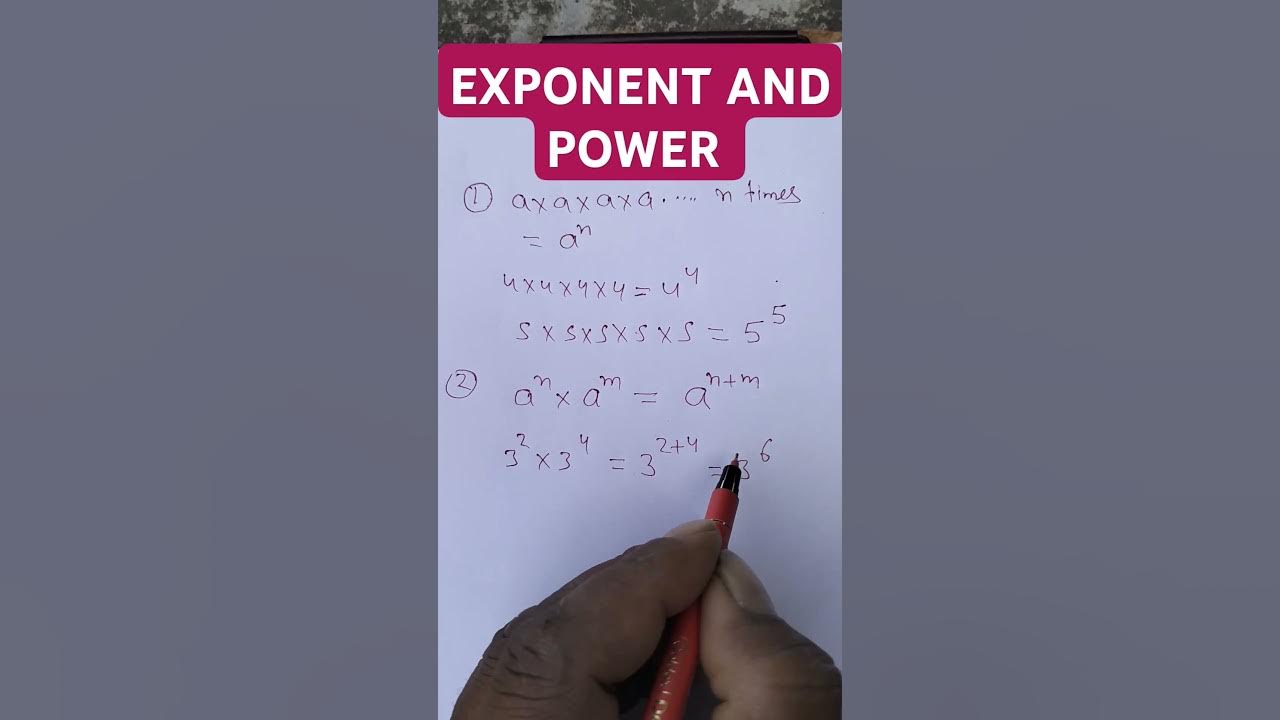 EXPONENT AND
POWER
① a×a×a×a..... n times
= aⁿ
4×4×4×4=4⁴
5×5×5×5×5=5⁵
② aⁿ×aᵐ = aⁿ⁺ᵐ
3²×3⁴ = 3²⁺⁴ = 3⁶